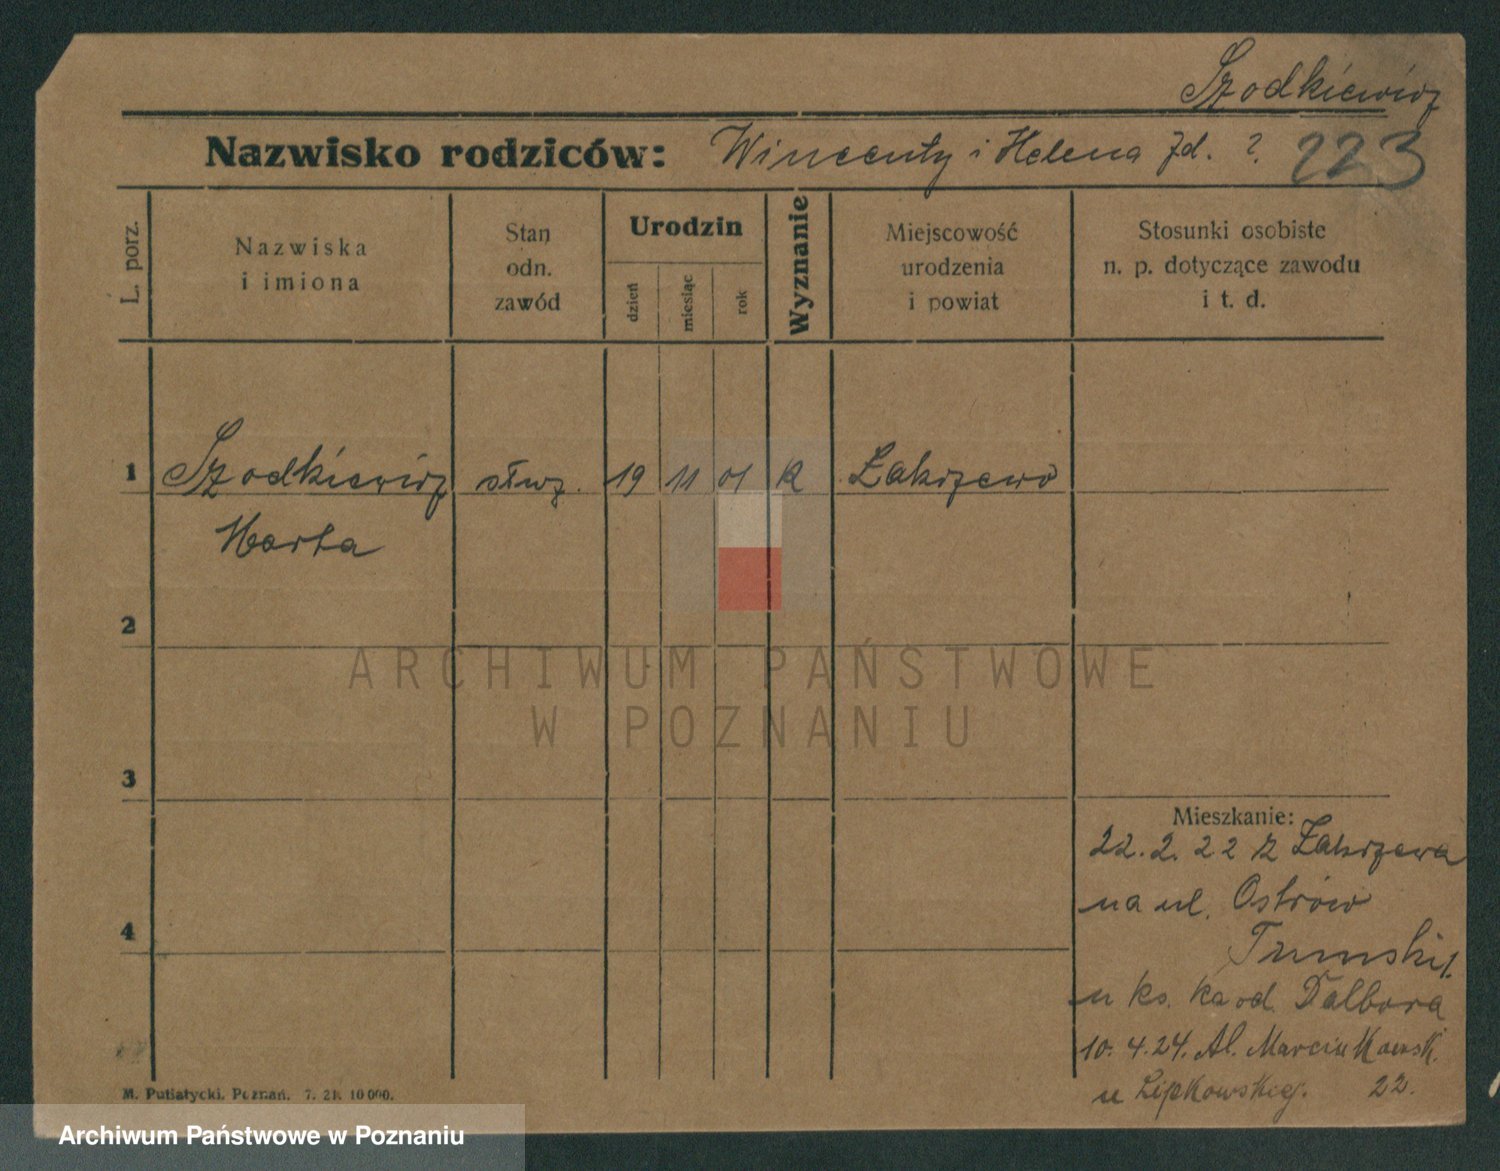 Szodkiewicz
Nazwisko rodziców: Wincenty i Helena zd. ? 223
L. porz.
Nazwiska
i imiona
Stan
odn.
zawód
Urodzin
dzień
miesiąc
rok
Wyznanie
Miejscowość
urodzenia
i powiat
Stosunki osobiste
n. p. dotyczące zawodu
i t. d.
1 Szodkiewicz służ. 19 11 01 K Zakrzewo
Marta
2
3
4
Mieszkanie:
22.2.22 z Zakrzewa
na ul. Ostrów
Tumski 1.
u ks. Dalbora
10.4.24. Al. Marcinkowsk.
u Lipkowskiej. 22.
M. Putiatycki, Poznań. 7. 21. 10 000.
ARCHIWUM PAŃSTWOWE
W POZNANIU
Archiwum Państwowe w Poznaniu